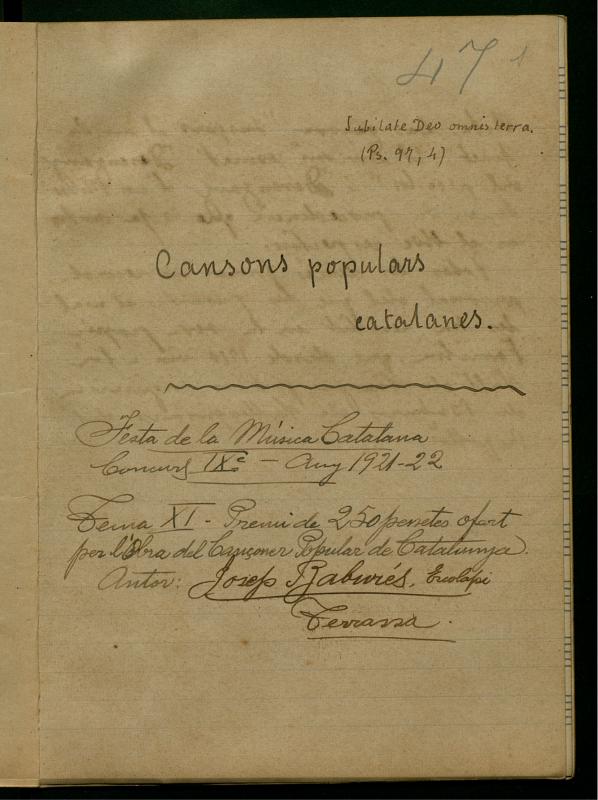 47 1
Jubilate Deo omnis terra.
(Ps. 97, 4)
Cansons populars
catalanes.
Festa de la Música Catalana
Concurs IXè - Any 1921-22
Tema XI - Premi de 250 pessetes ofert
per l'Obra del Cançoner Popular de Catalunya.
Autor: Josep Baburés, Escolapi
Terrassa.